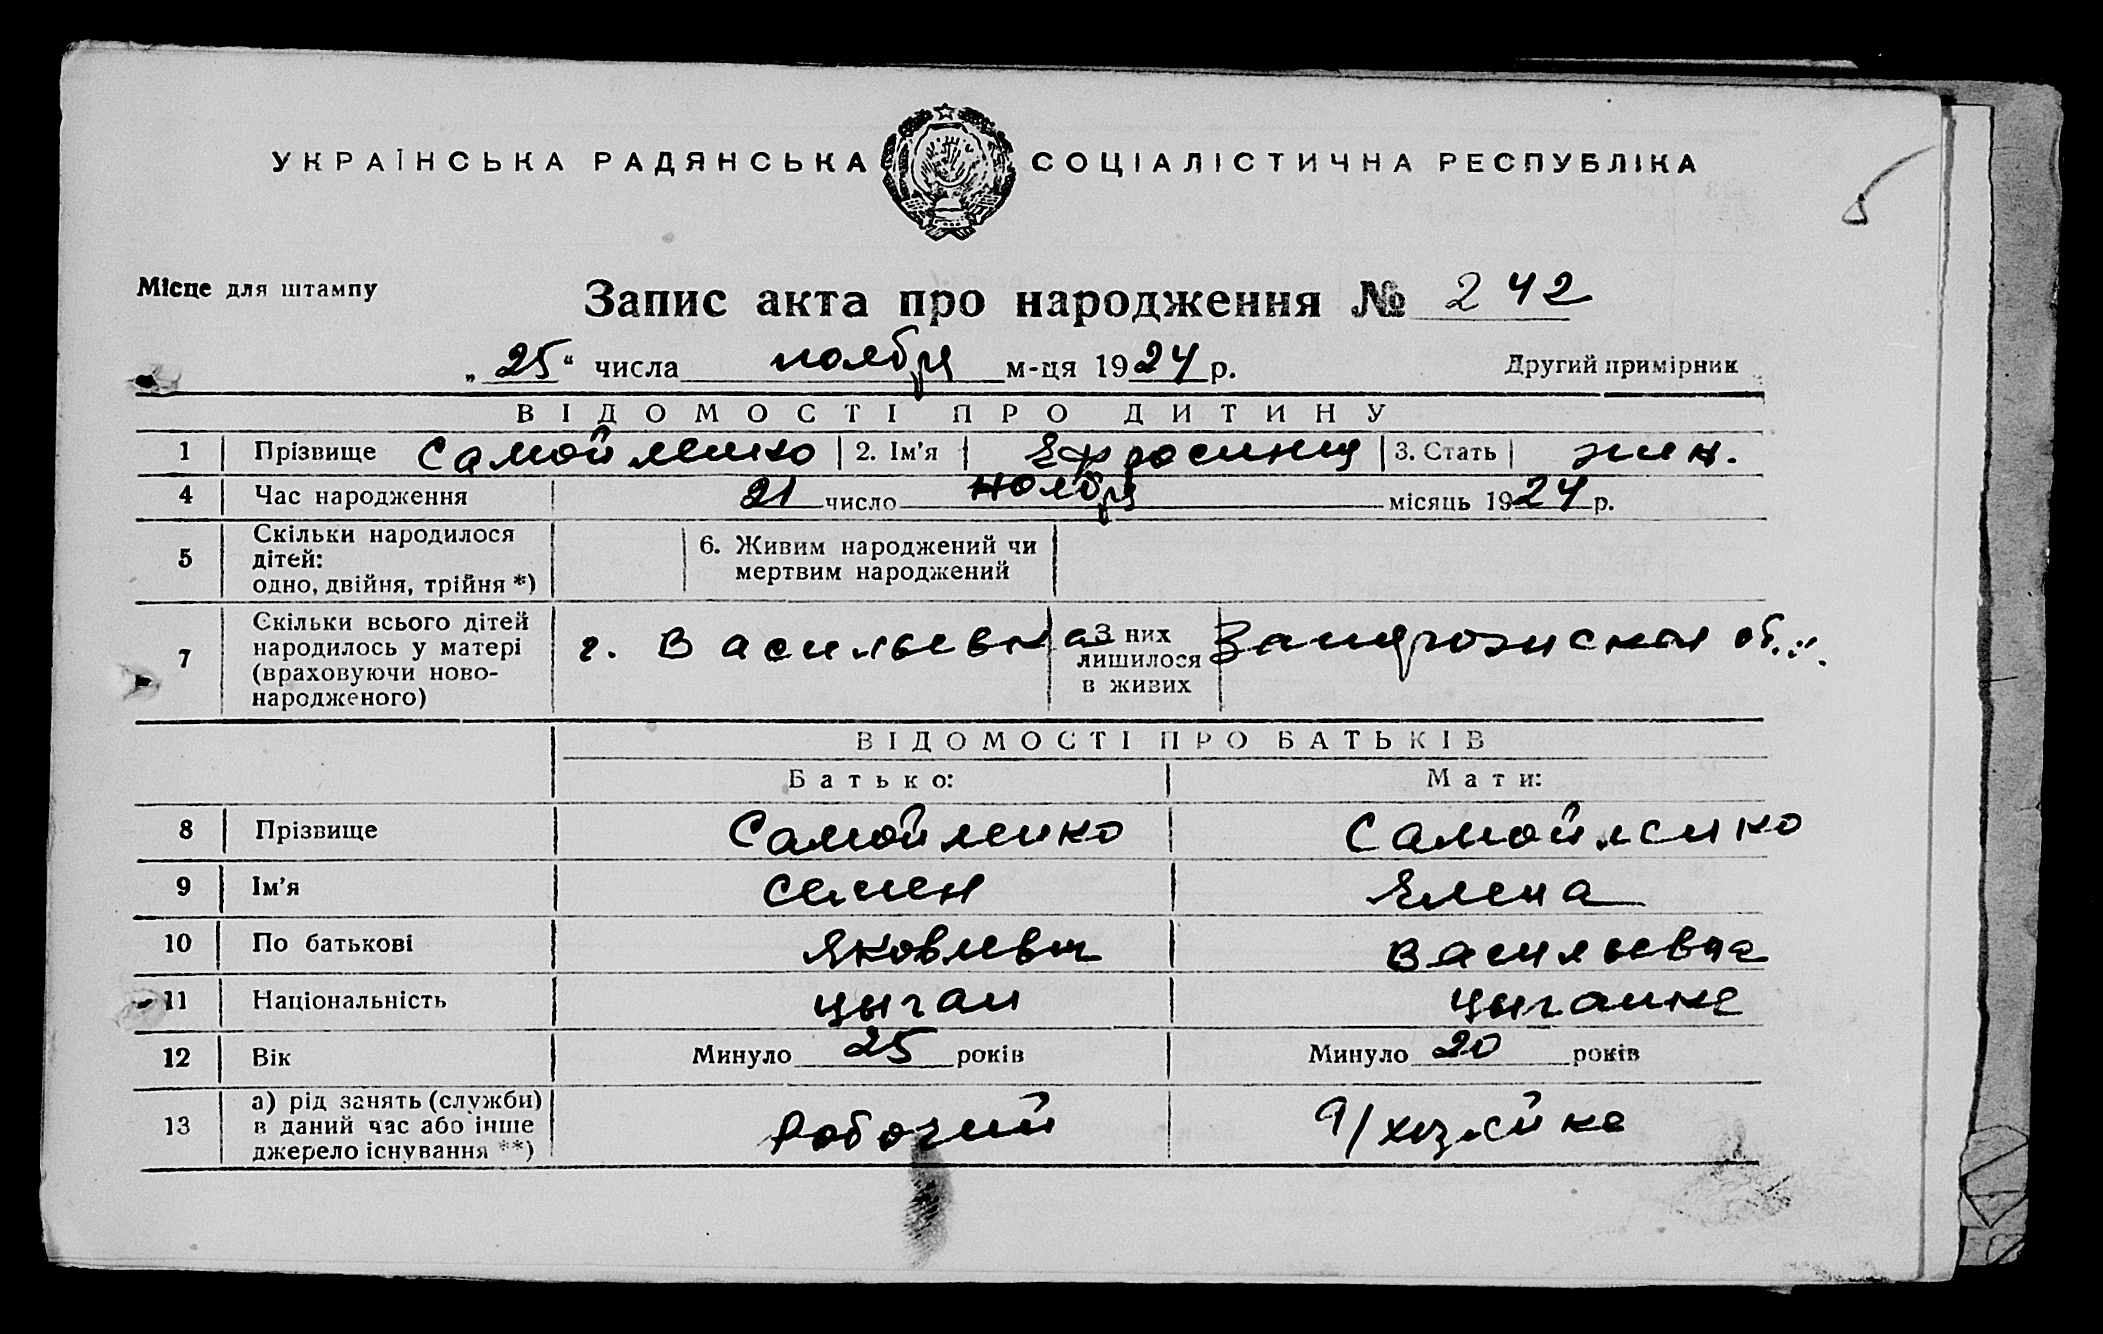 УКРАЇНСЬКА РАДЯНСЬКА СОЦІАЛІСТИЧНА РЕСПУБЛІКА
Місце для штампу
Запис акта про народження № 242
„25“ числа ноября м-ця 1924 р.
Другий примірник
ВІДОМОСТІ ПРО ДИТИНУ
1 Прізвище Самойленко 2. Ім'я Ефросиния 3. Стать жен.
4 Час народження 21 число ноября місяць 1924 р.
5 Скільки народилося дітей: одно, двійня, трійня *) 6. Живим народжений чи мертвим народжений
7 Скільки всього дітей народилось у матері (враховуючи новонародженого) г. Васильевка з них лишилося в живих Запорожской обл.
ВІДОМОСТІ ПРО БАТЬКІВ
Батько: Мати:
8 Прізвище Самойленко Самойленко
9 Ім'я Семен Елена
10 По батькові Яковлевич Васильевна
11 Національність цыган цыганка
12 Вік Минуло 25 років Минуло 20 років
13 а) рід занять (служби) в даний час або інше джерело існування **) рабочий д/хозяйка